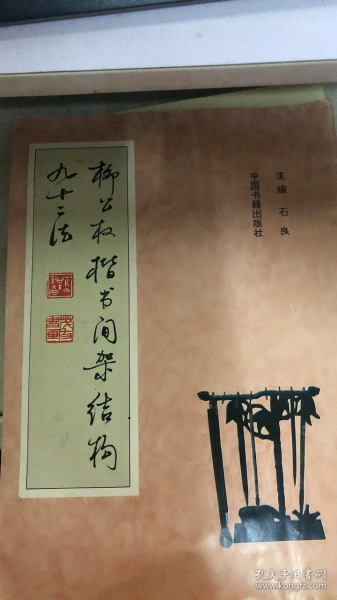 柳公权楷书间架结构
九十二法
主编 石良
中国书籍出版社
孔夫子旧书网
www.kongfz.com